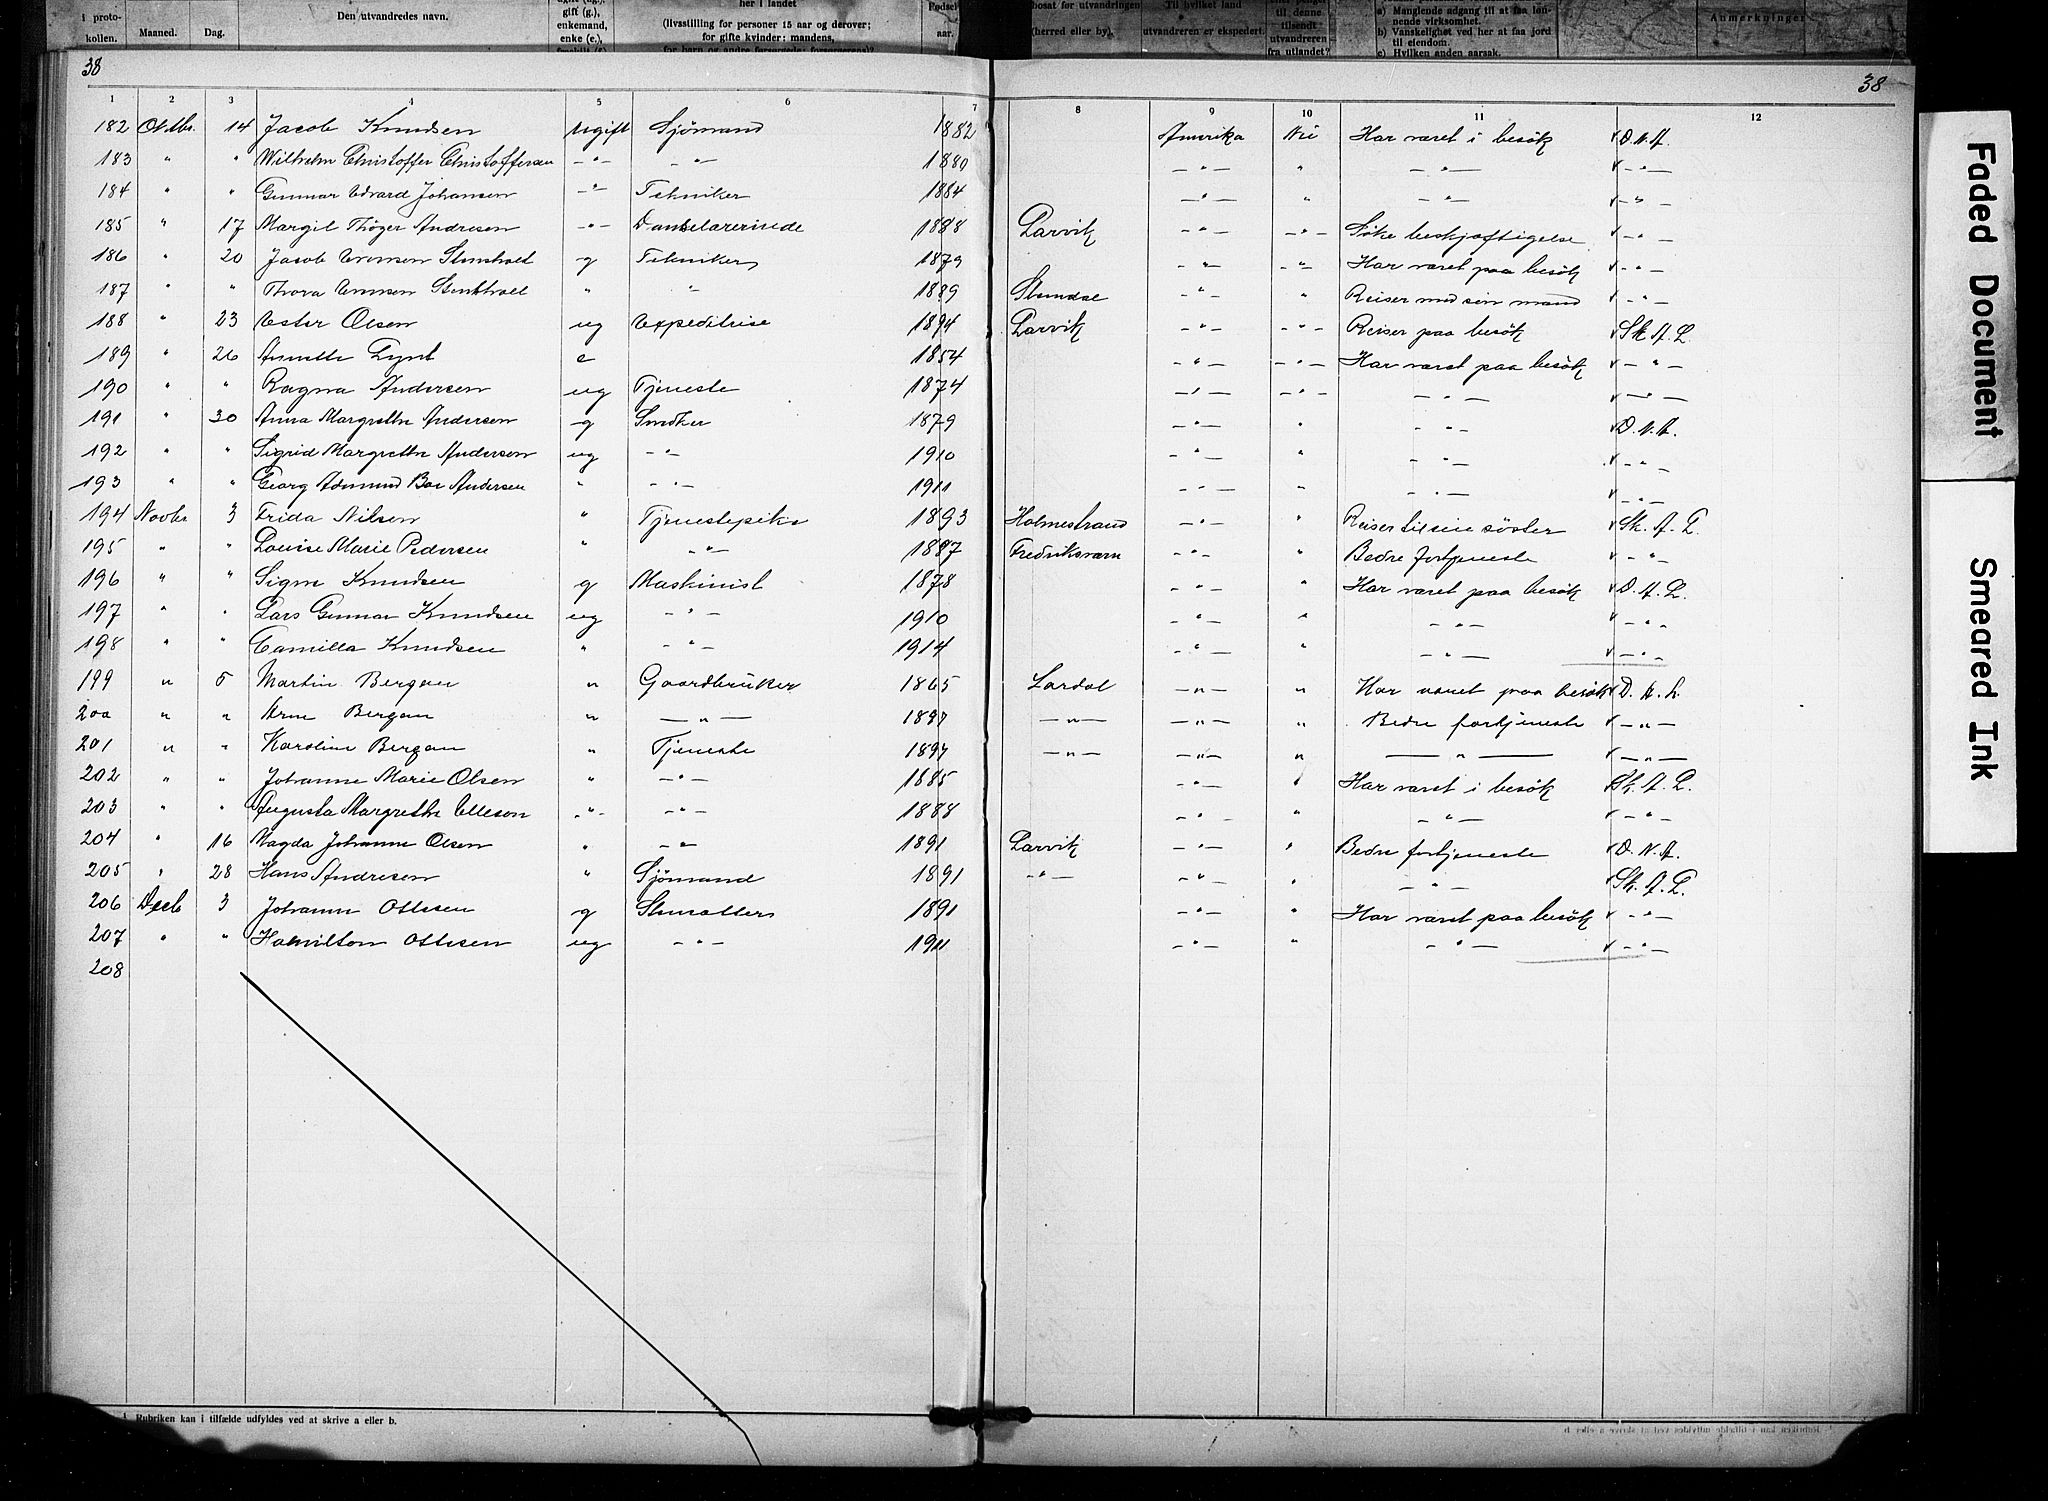 i proto-
kollen. Maaned. Dag. Den utvandredes navn. gift (g.), enkemand, enke (e.), her i landet (livsstilling for personer 15 aar og derover; for gifte kvinder: mandens, Fødsels aar. bosat før utvandringen (herred eller by). Til hvilket land utvandreren er ekspedert. til denne tilsendt utvandreren fra utlandet? a) Manglende adgang til at faa lønnende virksomhet. b) Vanskelighet ved her at faa jord til eiendom. c) Hvilken anden aarsak. Anmerkninger
38 38
1 2 3 4 5 6 7 8 9 10 11 12
182 Octbr. 14 Jacob Knudsen Ugift Sjömand 1882 Amerika Nei Har været i besök D.N.A.
183 " " Wilhelm Christoffer Christoffersen -"- -"- 1880 -"- " -"- -"-
184 " " Gunnar Edvard Johansen -"- Tekniker 1884 -"- " -"- -"-
185 " 17 Margit Thöger Andresen -"- Danselærerinde 1888 Larvik -"- -"- Söke beskjæftigelse -"-
186 " 20 Jacob g Tekniker 1879 -"- -"- Har været paa besök -"-
187 " " Thora " " 1889 -"- " Reiser med sin mand -"-
188 " 23 Ester Olsen ug Expeditrise 1894 Larvik -"- -"- Reiser paa besök Sk. A. L.
189 " 26 Annette e 1854 -"- -"- Har været paa besök -"-
190 " " Ragna Andersen ug Tjeneste 1874 -"- -"- -"- -"-
191 " 30 Anna Margrethe Andersen g Snedker 1879 -"- " -"- D.N.A.
192 " " Sigrid Margrethe Andersen ug -"- 1910 -"- " -"- -"-
193 " " Georg Andersen " -"- 1911 -"- " -"- -"-
194 Novbr 3 Frida Nilsen " Tjenestepike 1893 Holmestrand -"- " Reiser til sin söster Sk. A. L.
195 " " Louise Marie Pedersen " -"- 1887 Fredriksværn -"- " Bedre fortjeneste -"-
196 " " Signe Knudsen g Maskinist 1878 -"- " Har været paa besök D. A. L.
197 " " Lars Gunnar Knudsen ug -"- 1910 -"- " -"- -"-
198 " " Camilla Knudsen " -"- 1914 -"- " -"- -"-
199 " 5 Martin Bergan " Gaardbruker 1865 Lardal -"- " Har været paa besök D. A. L.
200 " " Arne Bergan " -"- 1897 -"- -"- " Bedre fortjeneste -"-
201 " " Karoline Bergan " Tjeneste 1897 -"- -"- " -"- -"-
202 " " Johanne Marie Olsen " -"- 1885 -"- " Har været i besök Sk. A. L.
203 " " Augusta Margrethe Elleson -"- -"- 1888 -"- " -"- -"-
204 " 16 Magda Johanne Olsen " -"- 1891 Larvik -"- " Bedre fortjeneste D.N.A.
205 " 28 Hans Andresen " Sjömand 1891 -"- -"- " -"- Sk. A. L.
206 Decb 3 Johanne Ottesen g 1891 -"- " Har været paa besök -"-
207 " " Hamilton Ottesen ug -"- 1911 -"- " -"- -"-
208
1 Rubriken kan i tilfælde utfyldes ved at skrive a eller b.
Faded Document
Smeared Ink